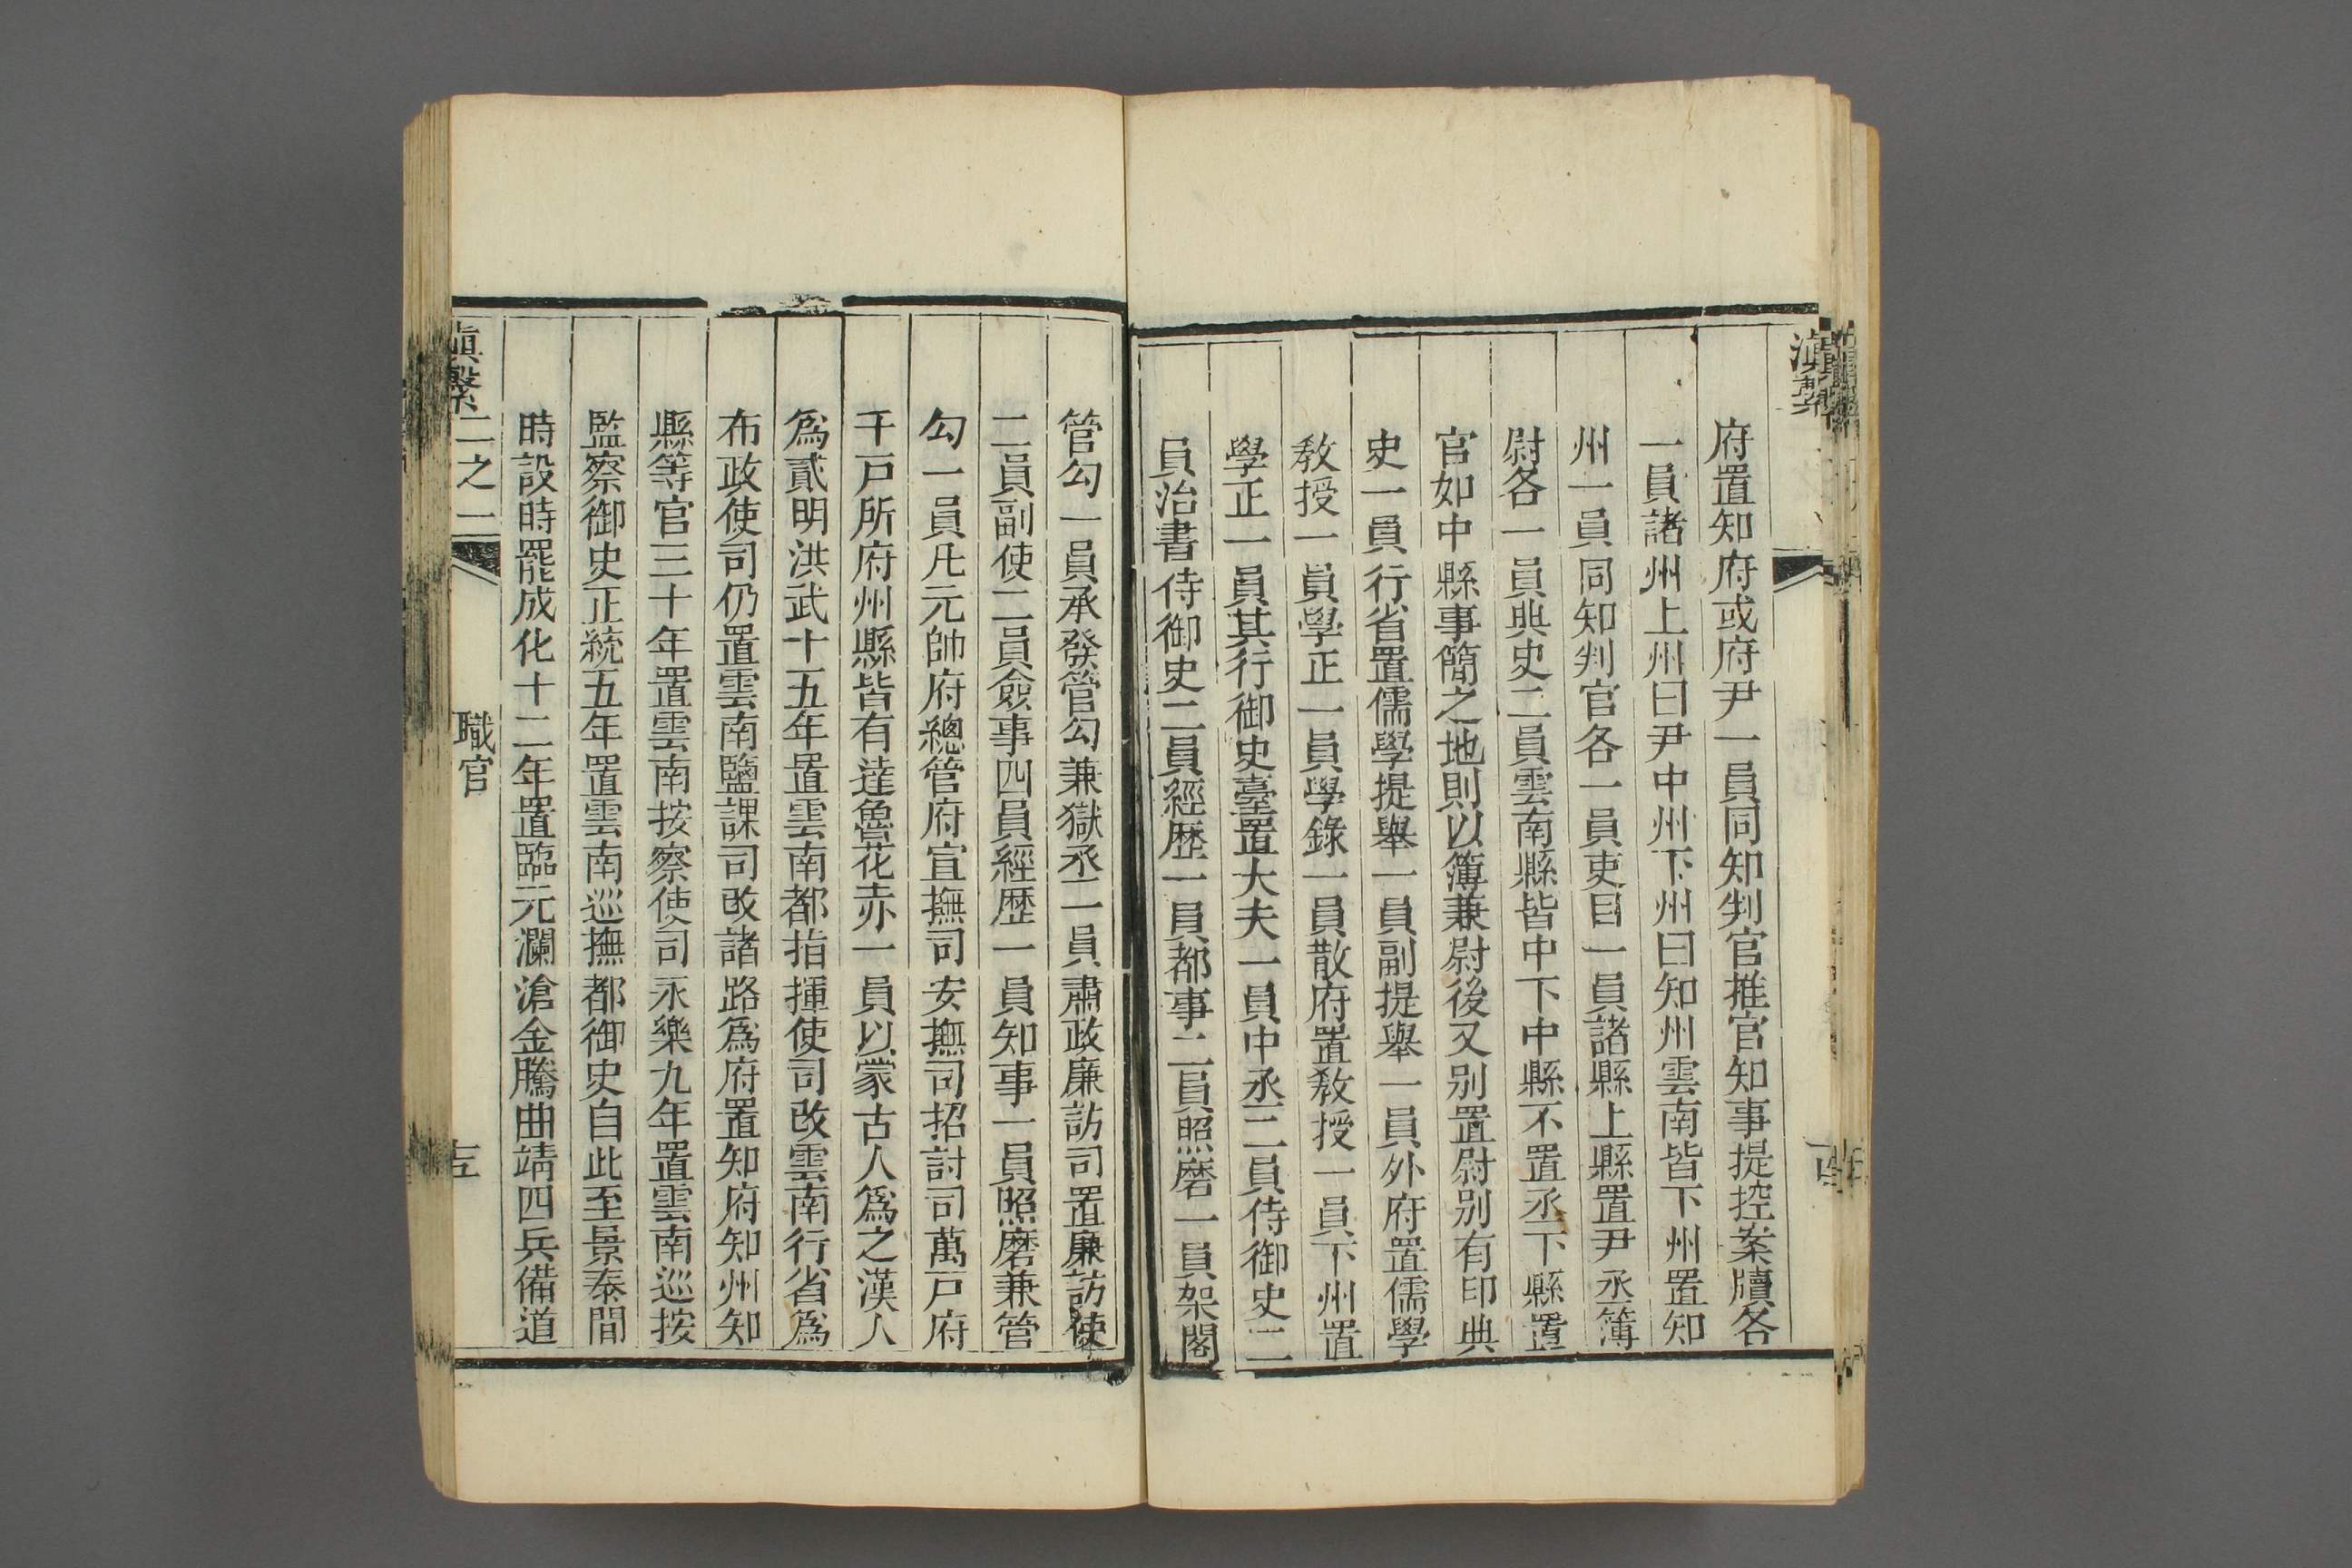 滇繫
府置知府或府尹一員同知判官推官知事提控案牘各
一員諸州上州曰尹中州下州曰知州雲南皆下州置知
州一員同知判官各一員吏目一員諸縣上縣置尹丞簿
尉各一員典史二員雲南縣皆中下中縣不置丞下縣置
官如中縣事簡之地則以簿兼尉後又別置尉別有印典
史一員行省置儒學提舉一員副提舉一員外府置儒學
教授一員學正一員學錄一員散府置教授一員下州置
學正一員其行御史臺置大夫一員中丞二員侍御史二
員治書侍御史二員經歷一員都事二員照磨一員架閣
管勾一員承發管勾兼獄丞二員肅政廉訪司置廉訪使
二員副使二員僉事四員經歷一員知事一員照磨兼管
勾一員凡元帥府總管府宣撫司安撫司招討司萬戸府
千戸所府州縣皆有達魯花赤一員以蒙古人爲之漢人
爲貳明洪武十五年置雲南都指揮使司改雲南行省爲
布政使司仍置雲南鹽課司改諸路爲府置知府知州知
縣等官三十年置雲南按察使司永樂九年置雲南巡按
監察御史正統五年置雲南巡撫都御史自此至景泰間
時設時罷成化十二年置臨元瀾滄金騰曲靖四兵備道
滇繫二之二 職官